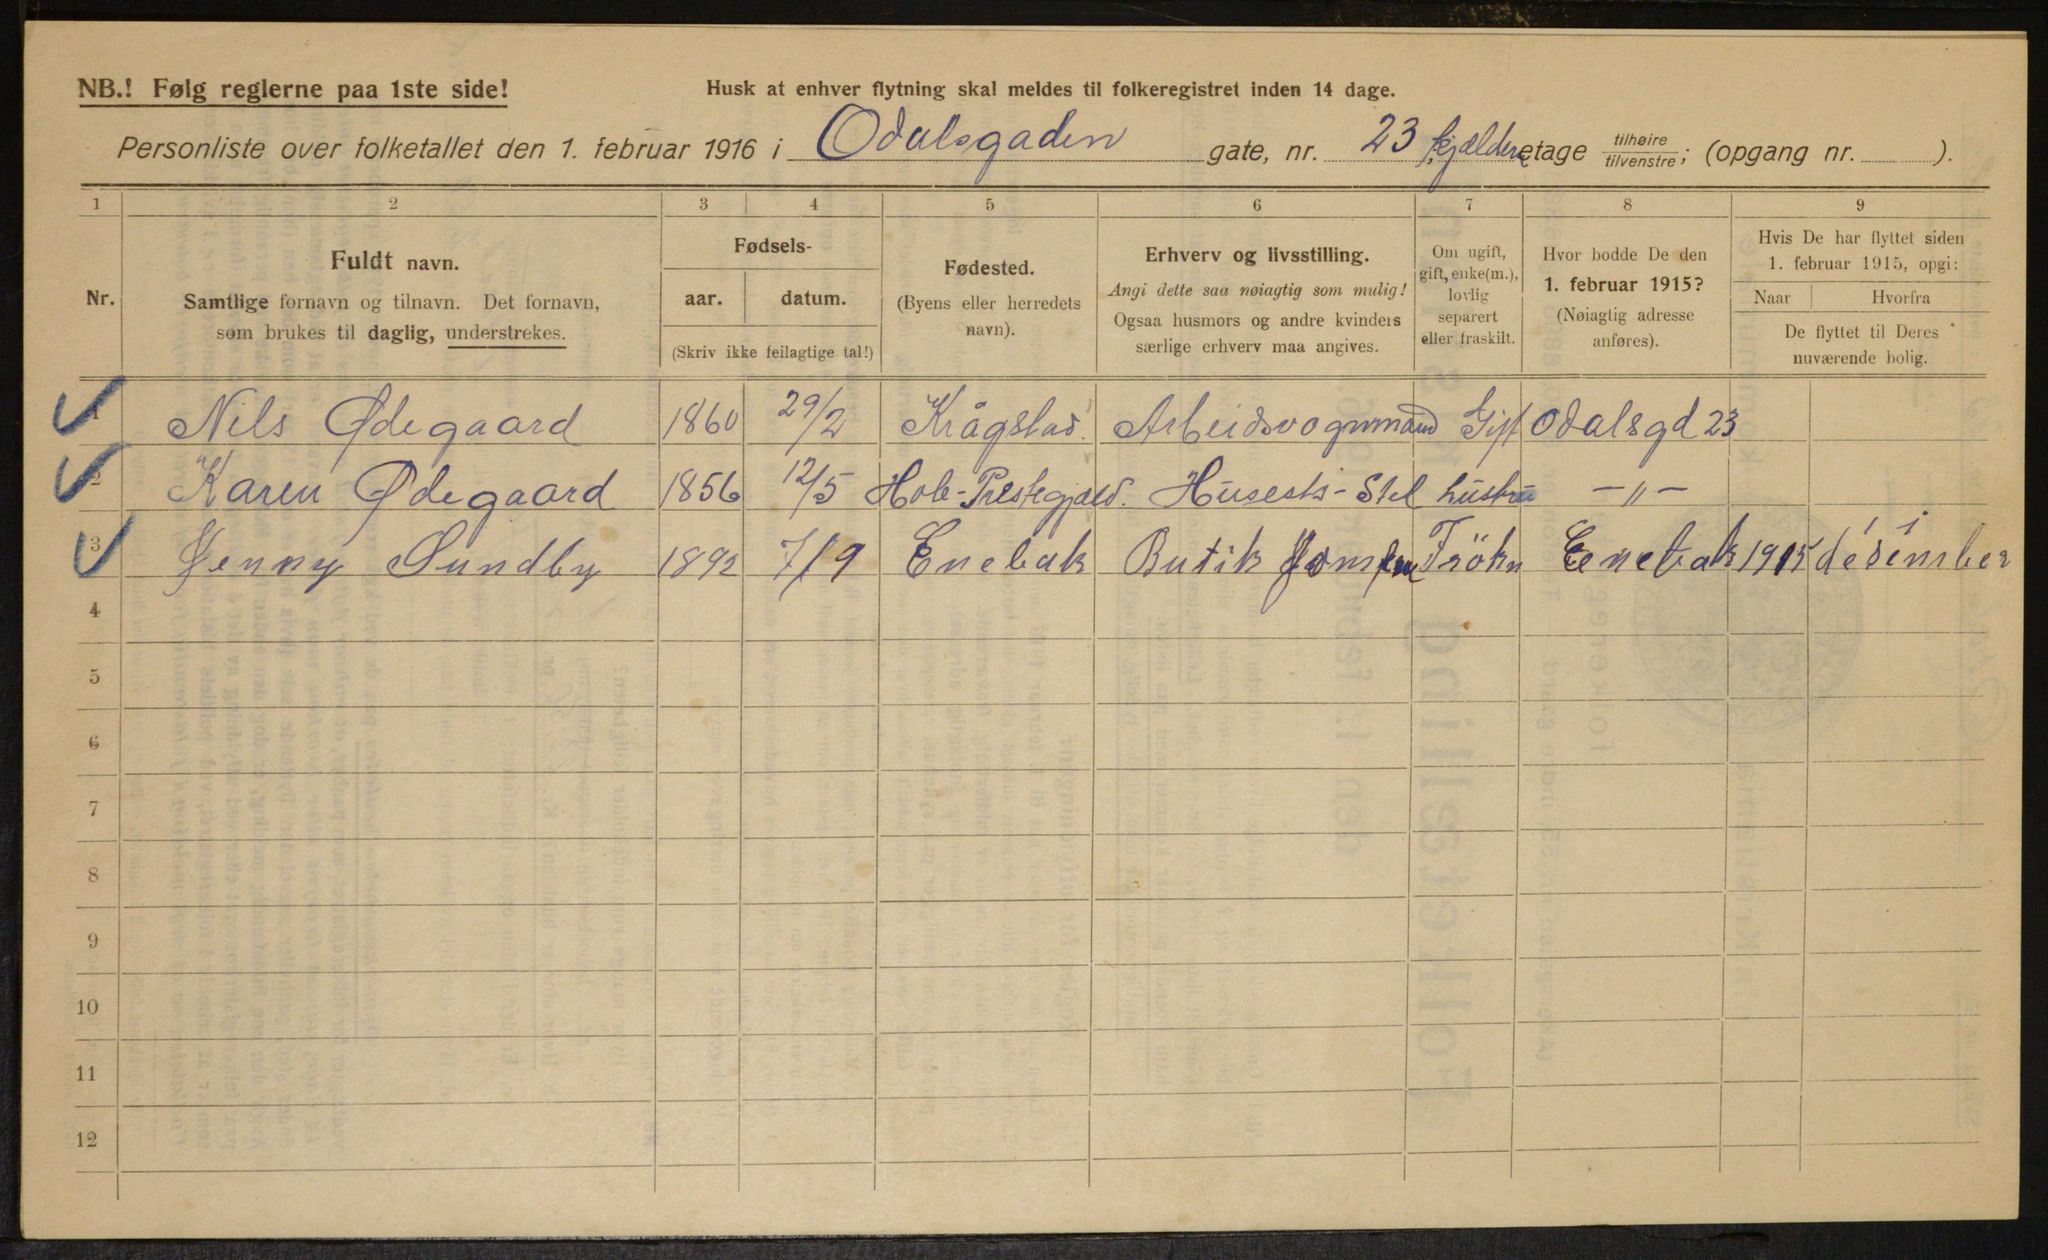 NB.! Følg reglerne paa 1ste side!
Husk at enhver flytning skal meldes til folkeregistret inden 14 dage.
Personliste over folketallet den 1. februar 1916 i Odalsgaden gate, nr. 23 kjælder etage tilhøire/tilvenstre; (opgang nr. ).
1 2 3 4 5 6 7 8 9
Nr.
Fuldt navn.
Samtlige fornavn og tilnavn. Det fornavn,
som brukes til daglig, understrekes.
Fødsels-
aar. datum.
(Skriv ikke feilagtige tal!)
Fødested.
(Byens eller herredets
navn).
Erhverv og livsstilling.
Angi dette saa nøiagtig som mulig!
Ogsaa husmors og andre kvinders
særlige erhverv maa angives.
Om ugift,
gift, enke(m.),
lovlig
separert
eller fraskilt.
Hvor bodde De den
1. februar 1915?
(Nøiagtig adresse
anføres).
Hvis De har flyttet siden
1. februar 1915, opgi:
Naar Hvorfra
De flyttet til Deres
nuværende bolig.
1 Nils Ødegaard 1860 29/2 Krågstad. Arbeidsvognmand Gift Odalsgd 23
2 Karen Ødegaard 1856 12/5 Hole-Prestegjæld. Husests-Stel hustru —〃—
3 Jenny Sundby 1892 7/9 Enebak Butik Jomfru Frökn Enebak 1915 i désember
4
5
6
7
8
9
10
11
12